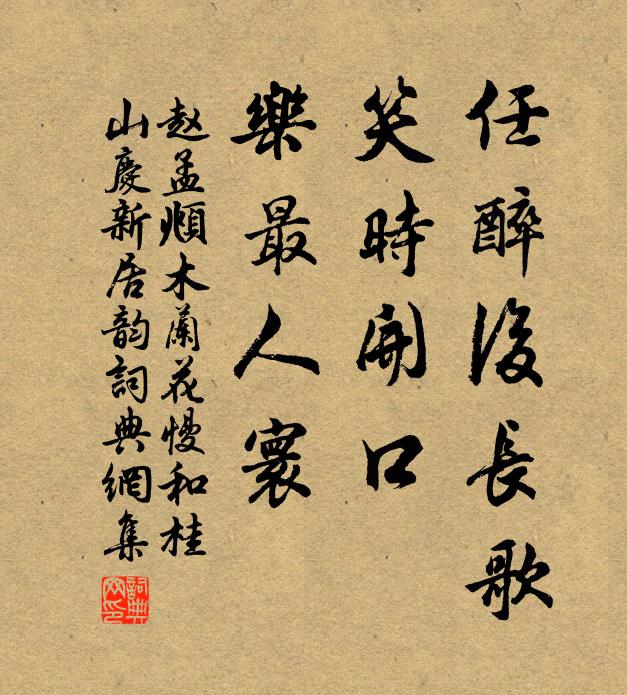 任醉後長歌
笑時開口
樂最人寰
赵孟頫木蘭花慢和桂
山慶新居韵詞典網集
詞典網印